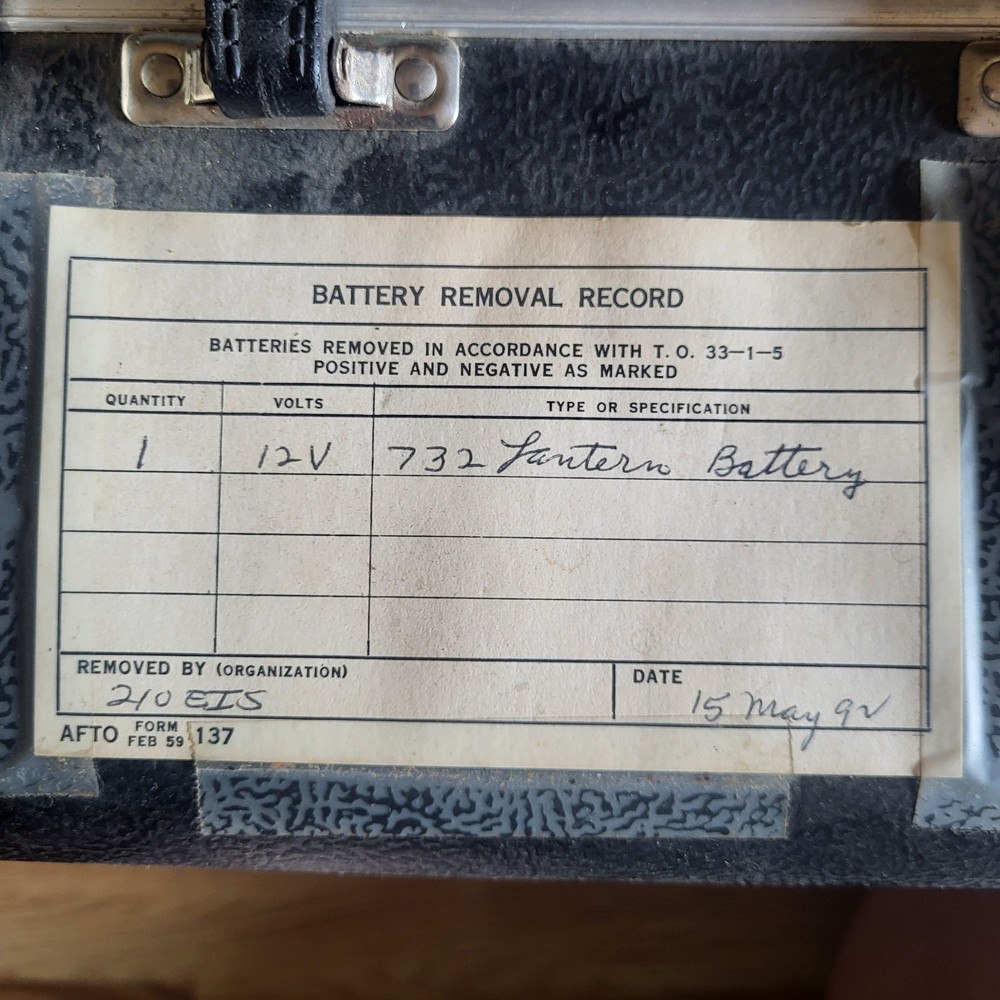 BATTERY REMOVAL RECORD
BATTERIES REMOVED IN ACCORDANCE WITH T. O. 33—1—5
POSITIVE AND NEGATIVE AS MARKED
QUANTITY VOLTS TYPE OR SPECIFICATION
1 12V 732 Lantern Battery
REMOVED BY (ORGANIZATION) DATE
210 EIS 15 May 92
AFTO FORM FEB 59 137